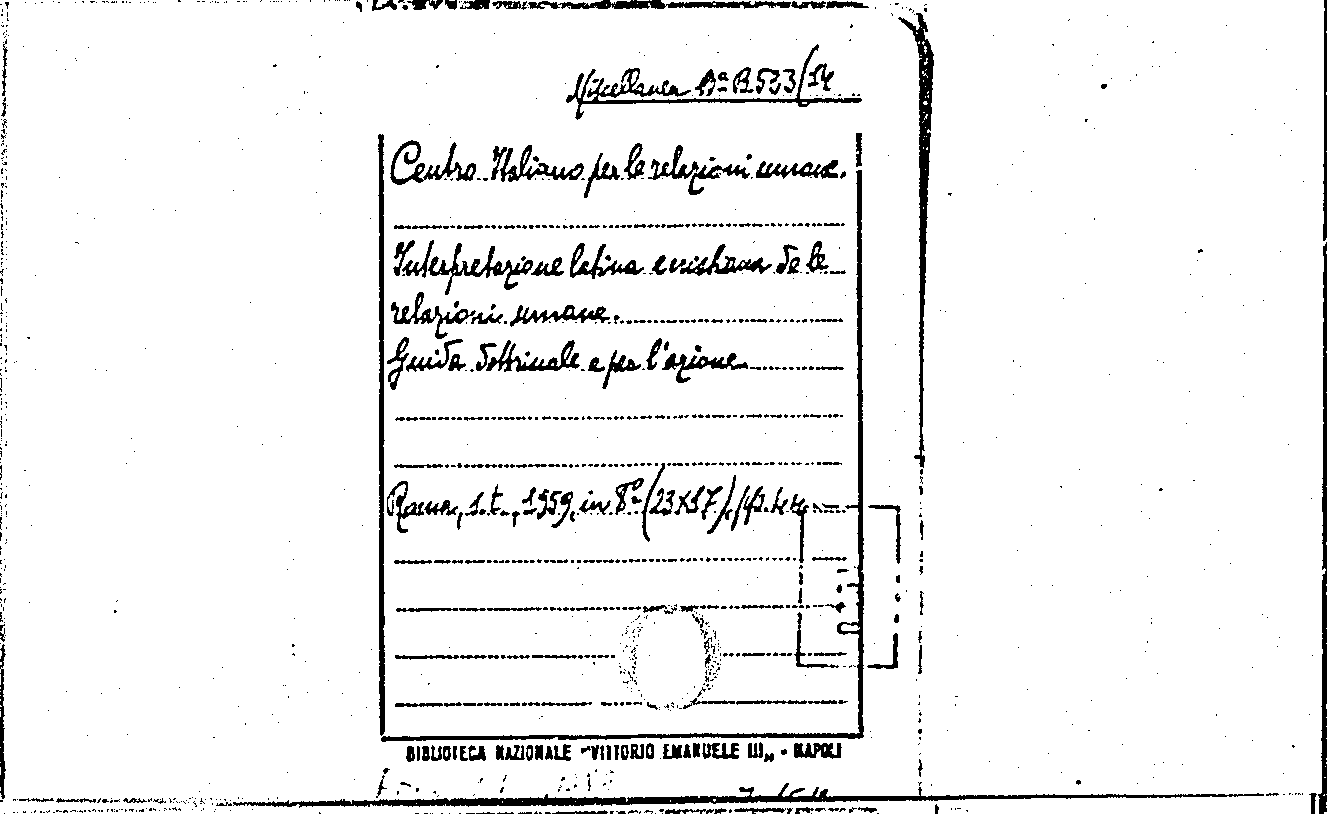 Miscellanea Bª B 533/14
Centro Italiano per le relazioni umane.
Interpretazione latina e cristiana de le
relazioni umane.
Guida dottrinale e per l'azione
Roma, s.t., 1959, in 8º (23x17), pp. 44
BIBLIOTECA NAZIONALE "VITTORIO EMANUELE III" - NAPOLI